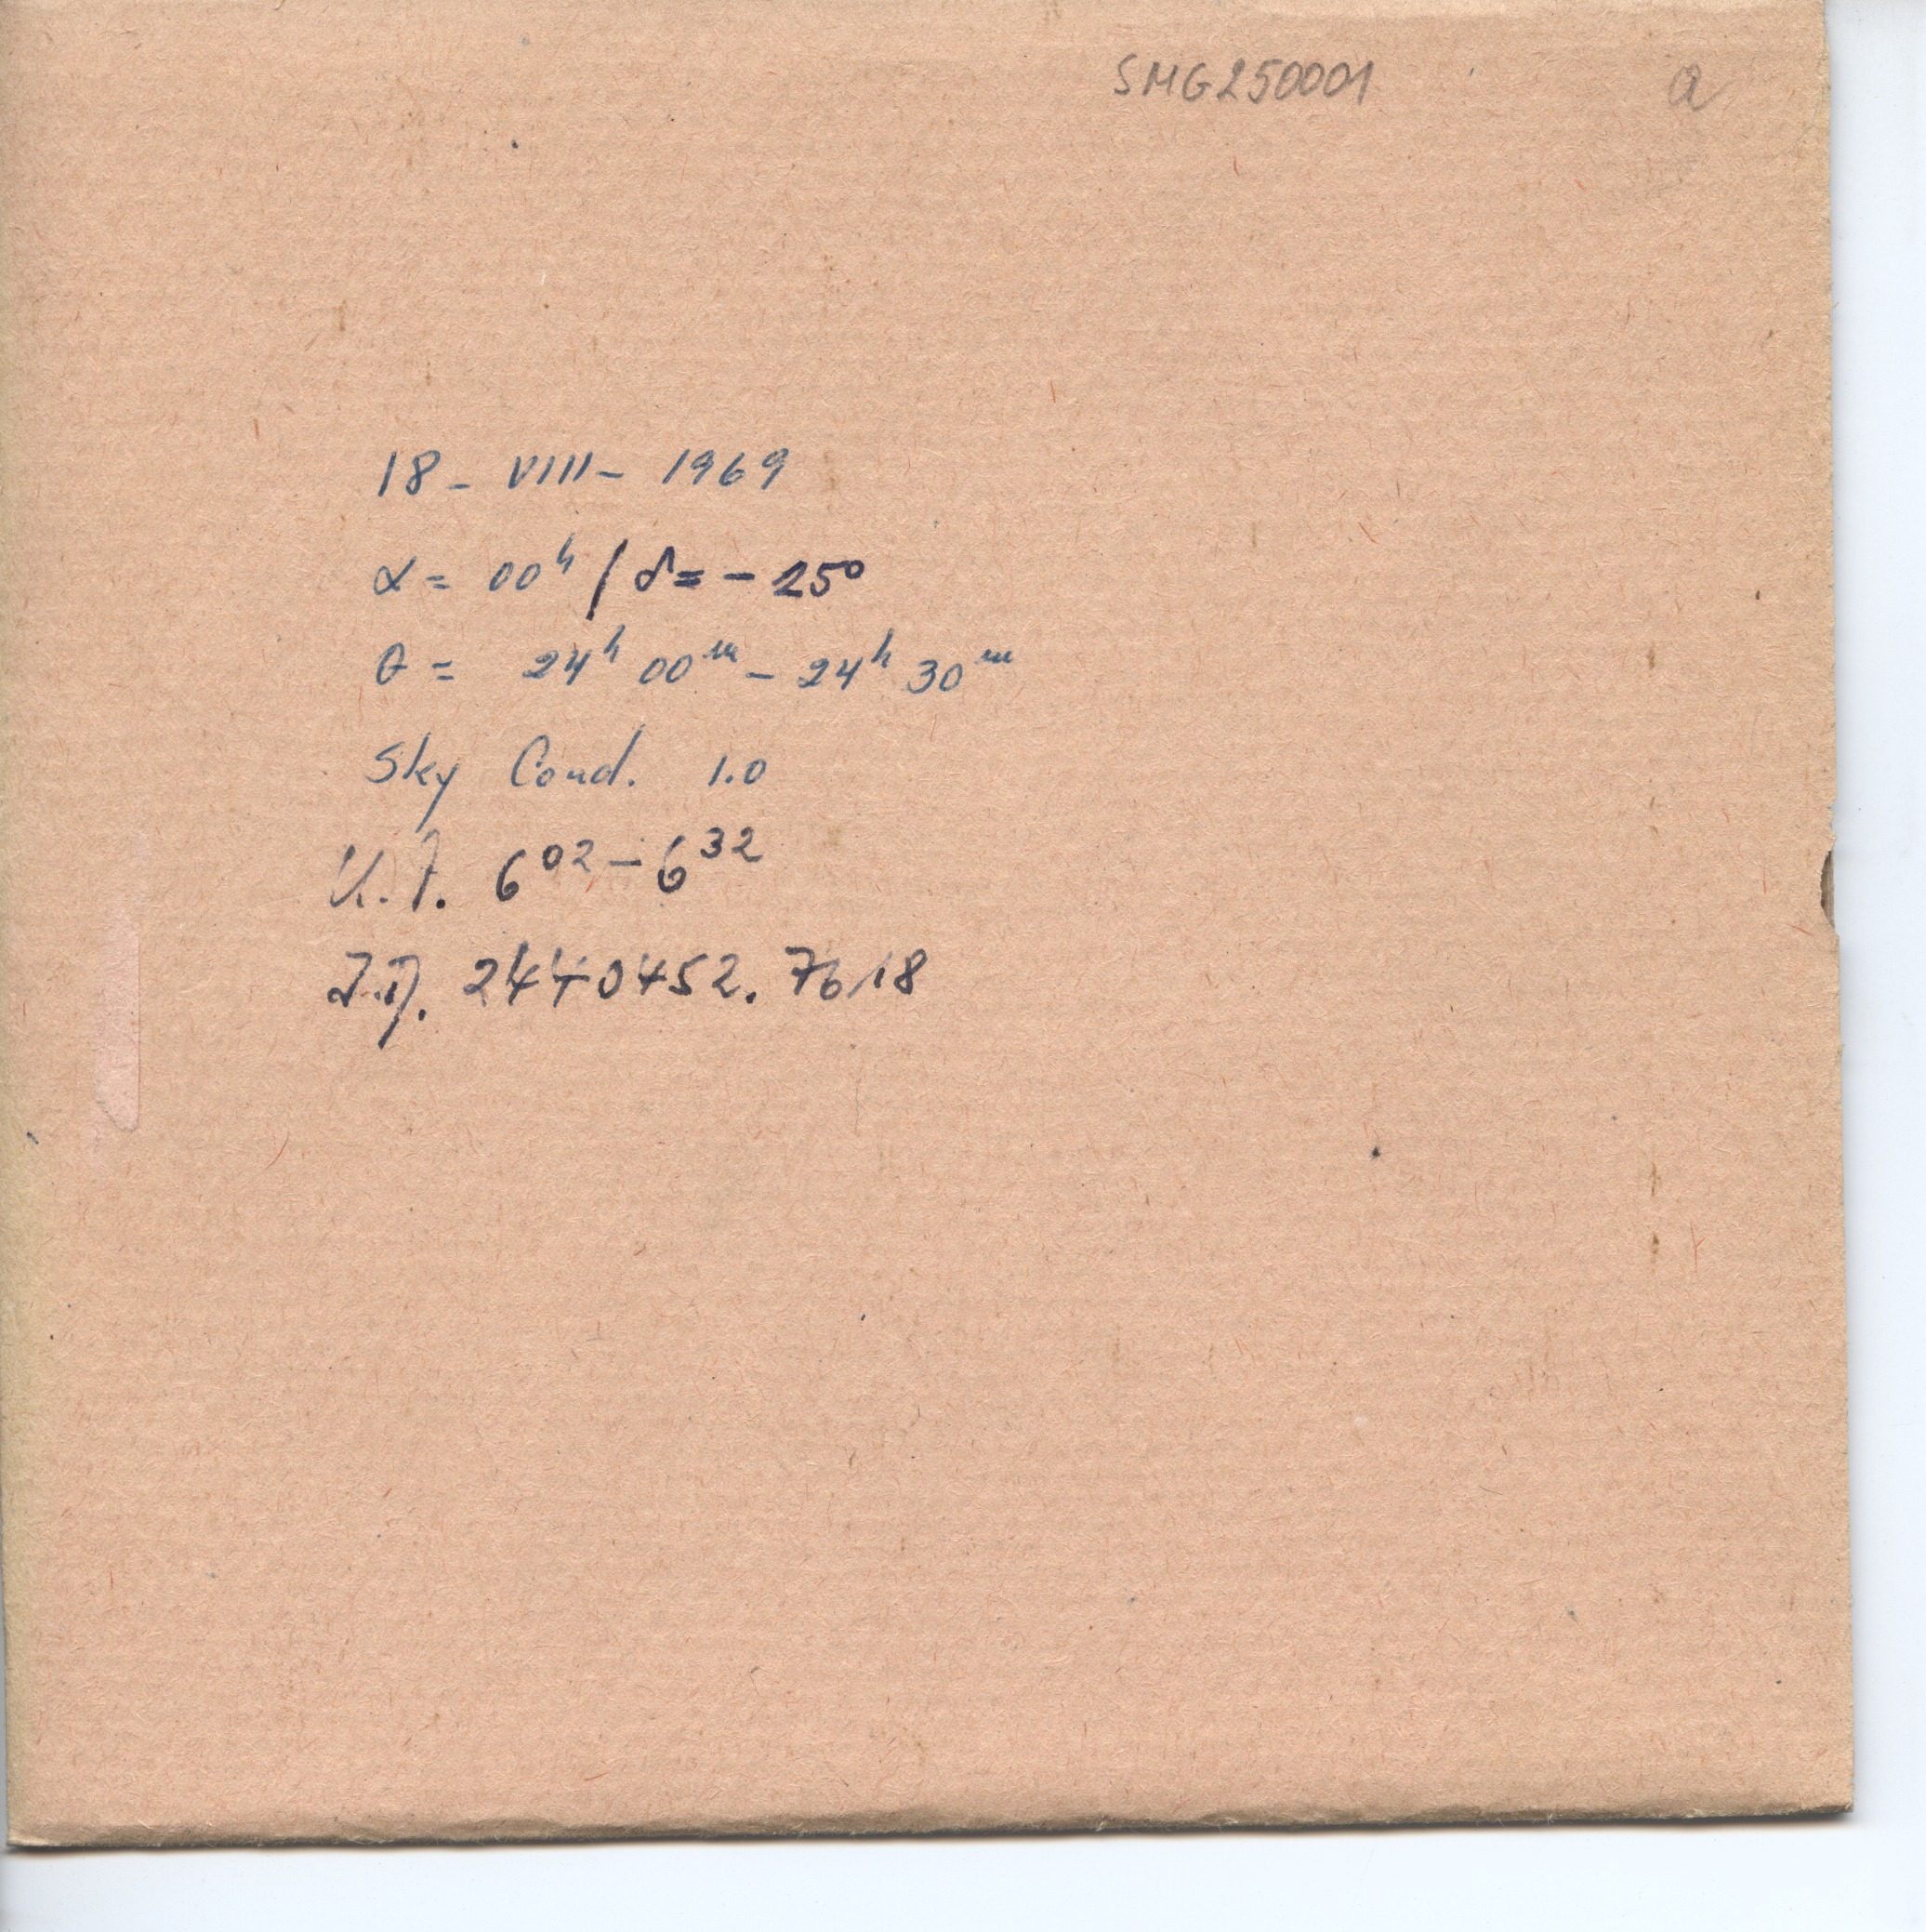 SMG250001 a
18 - VIII - 1969
α = 00ʰ / δ = - 25°
θ = 24ʰ 00ᵐ - 24ʰ 30ᵐ
Sky Cond. 1.0
U.T. 6⁰² - 6³²
J.D. 2440452.7618